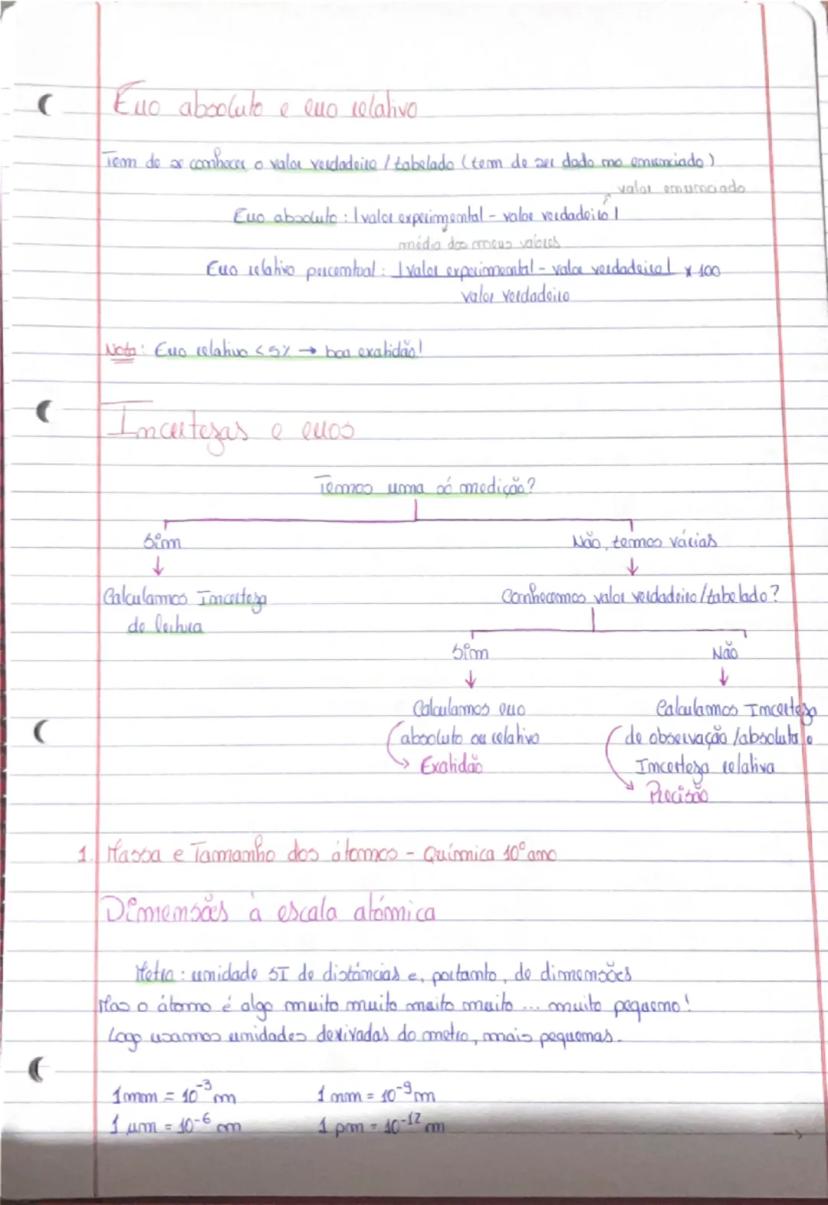 Erro absoluto e erro relativo
Tem de se conhecer o valor verdadeiro / tabelado (tem de ser dado no enunciado)
valor enunciado
Erro absoluto : |valor experimental - valor verdadeiro|
média dos meus valores
Erro relativo percentual : |valor experimental - valor verdadeiro| x 100
valor verdadeiro
Nota : Erro relativo < 5% → boa exatidão!
Incertezas e erros
Temos uma só medição?
Sim Não, temos várias
↓ ↓
Calculamos Incerteza Conhecemos valor verdadeiro/tabelado?
de leitura
Sim Não
↓ ↓
Calculamos erro Calculamos Incerteza
absoluto ou relativo de observação/absoluta e
→ Exatidão Incerteza relativa
→ Precisão
1. Massa e Tamanho dos átomos - Química 10º ano
Dimensões à escala atómica
Metro : unidade SI de distâncias e, portanto, de dimensões
Mas o átomo é algo muito muito muito muito ... muito pequeno!
Logo usamos unidades derivadas do metro, mais pequenas.
1 mm = 10⁻³ m 1 nm = 10⁻⁹ m
1 µm = 10⁻⁶ m 1 pm = 10⁻¹² m
→